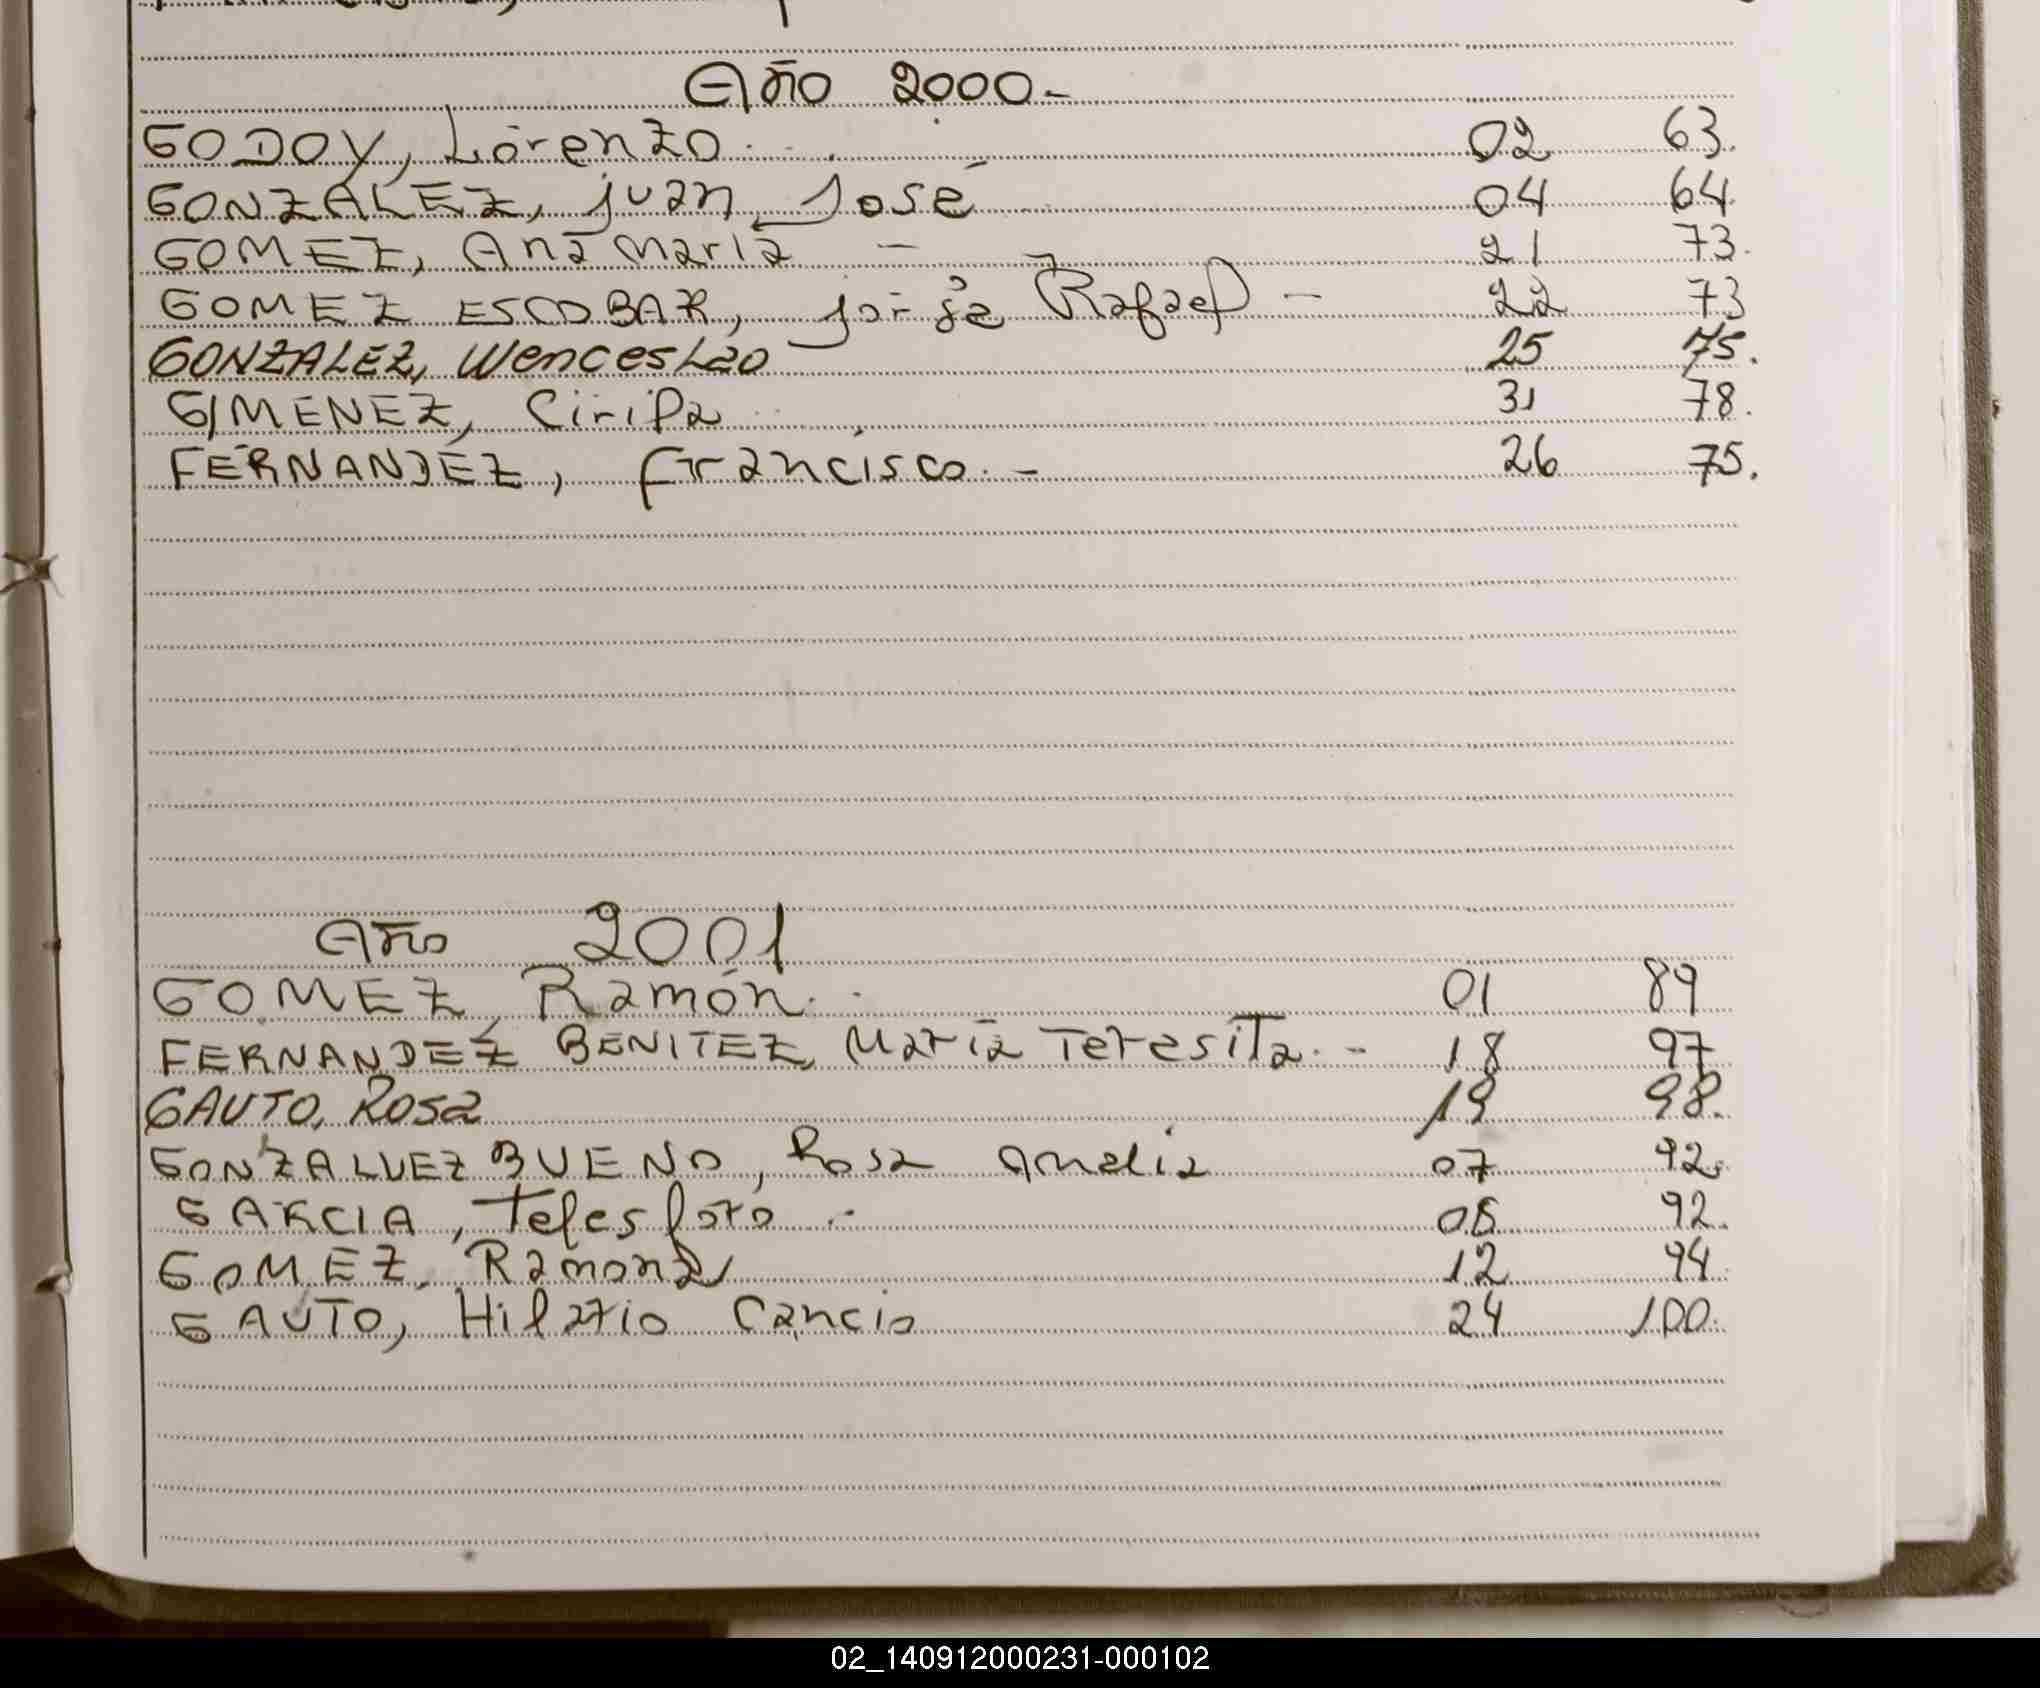 Año 2000.-
GODOY, Lorenzo. 02 63.
GONZALEZ, Juan José 04 64.
GOMEZ, Ana Maria - 21 73.
GOMEZ ESCOBAR, Jorge Rafael - 22 73
GONZALEZ, Wenceslao 25 75.
GIMENEZ, Cirila 31 78.
FERNANDEZ, Francisco. - 26 75.
Año 2001
GOMEZ, Ramón. 01 89
FERNANDEZ BENITEZ, Maria Teresita. - 18 97
GAUTO, Rosa 19 98.
GONZALVEZ BUENO, Rosa Amelia 07 92.
GARCIA, Telesforo . 08 92.
GOMEZ, Ramona 12 94
GAUTO, Hilario Cancio 24 100.
02_140912000231-000102